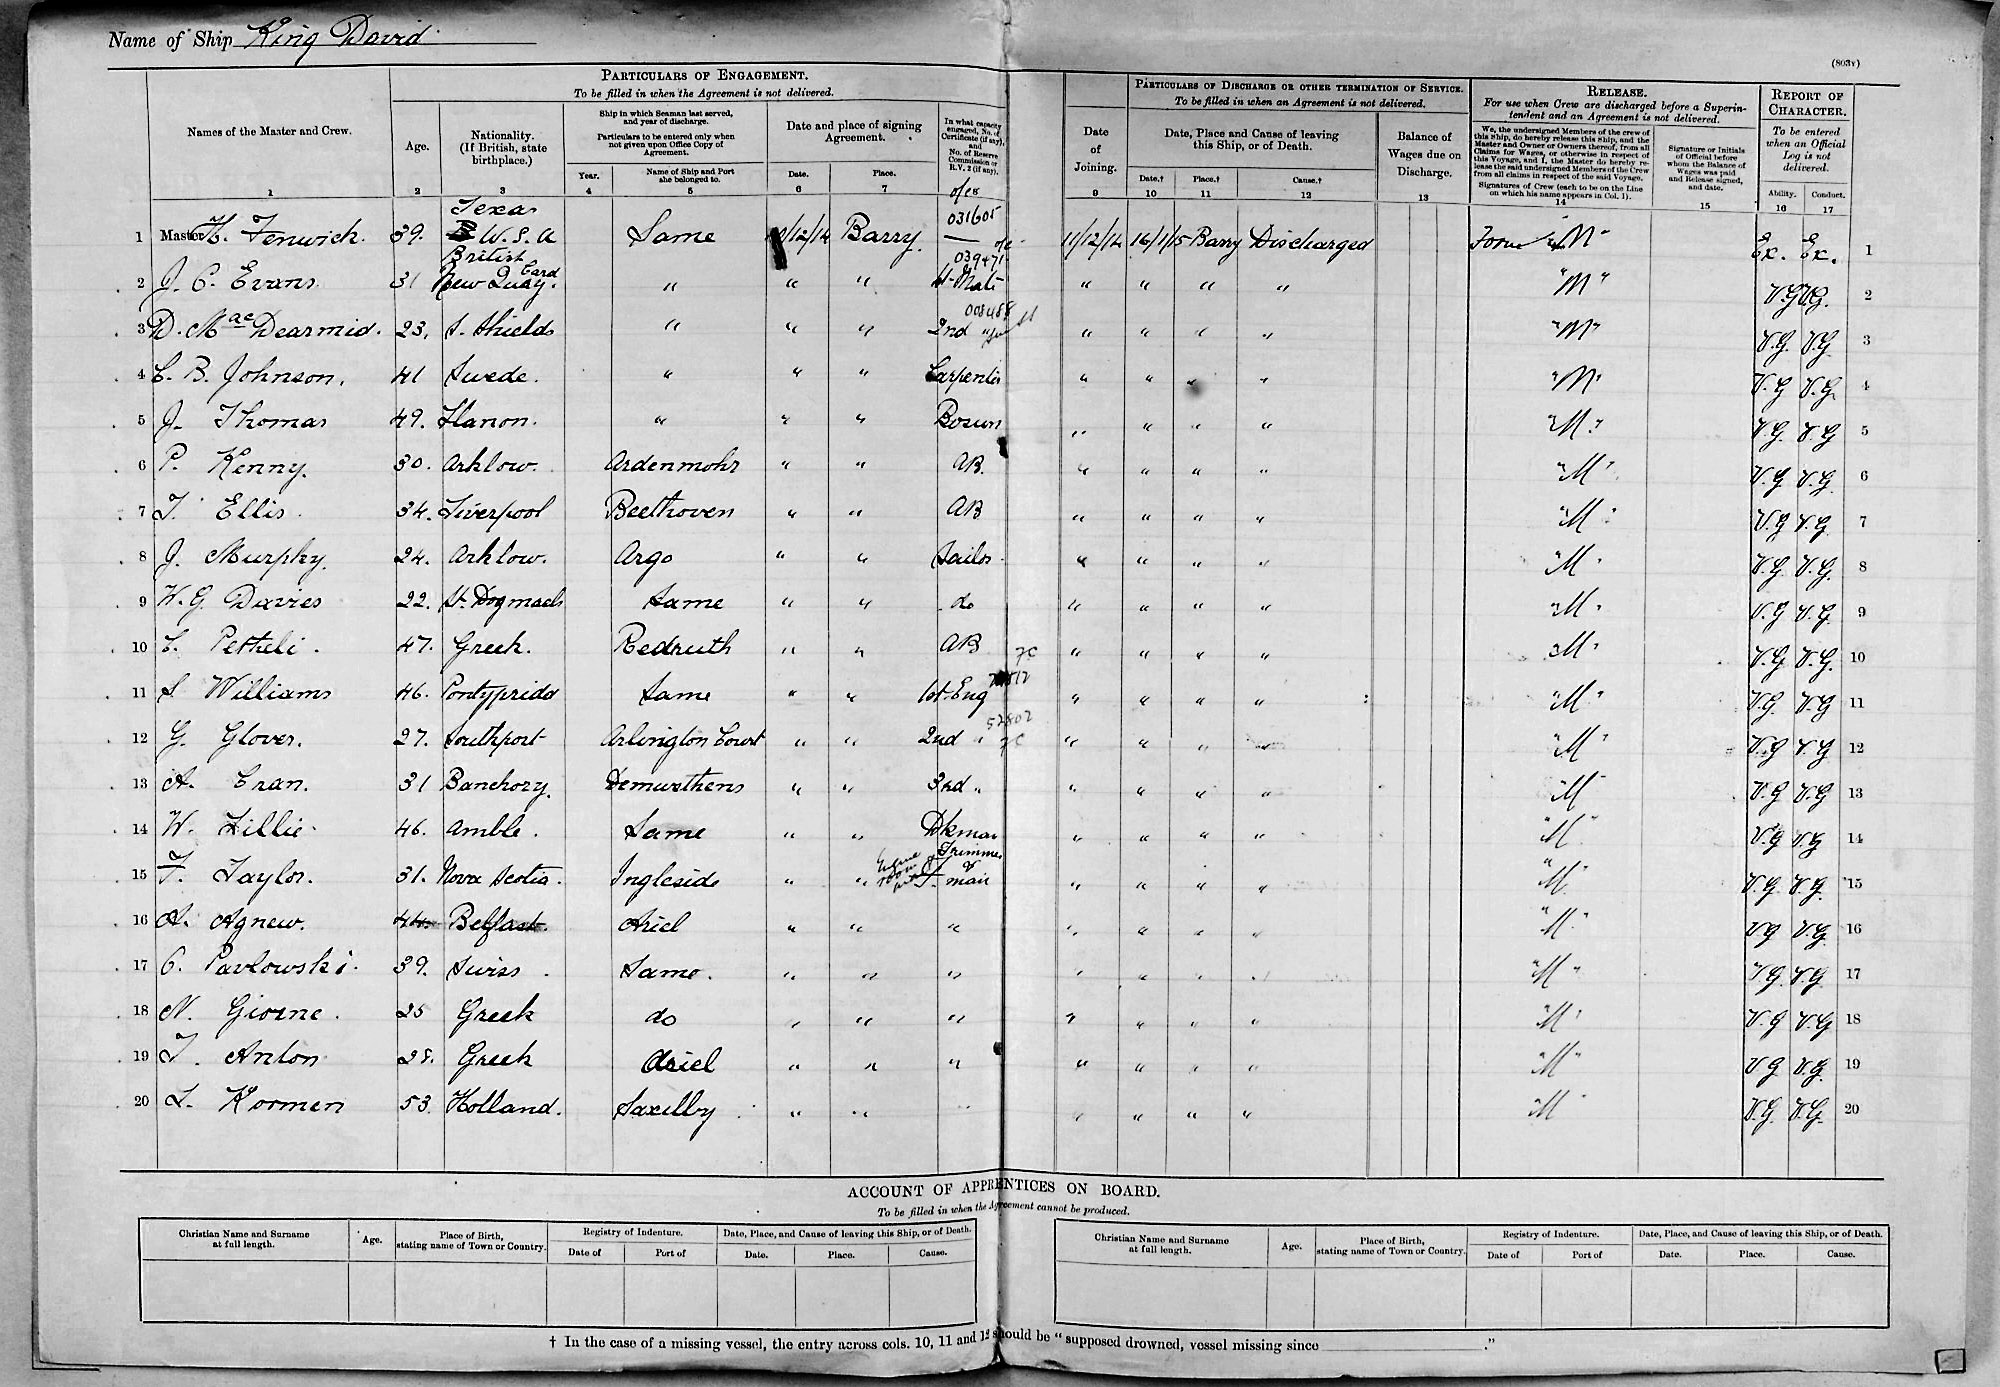 Name of Ship King David
(803v)
PARTICULARS OF ENGAGEMENT.
To be filled in when the Agreement is not delivered.
PARTICULARS OF DISCHARGE OR OTHER TERMINATION OF SERVICE.
To be filled in when an Agreement is not delivered.
RELEASE.
For use when Crew are discharged before a Superin-
tendent and an Agreement is not delivered.
REPORT OF
CHARACTER.
To be entered
when an Official
Log is not
delivered.
Names of the Master and Crew.
Age.
Nationality.
(If British, state
birthplace.)
Ship in which Seaman last served,
and year of discharge.
Particulars to be entered only when
not given upon Office Copy of
Agreement.
Year.
Name of Ship and Port
she belonged to.
Date and place of signing
Agreement.
Date.
Place.
In what capacity
engaged, No. of
Certificate (if any),
and
No. of Reserve
Commission or
R.V. 2 (if any).
Date
of
Joining.
Date, Place and Cause of leaving
this Ship, or of Death.
Date.†
Place.†
Cause.†
Balance of
Wages due on
Discharge.
We, the undersigned Members of the crew of
this Ship, do hereby release this Ship, and the
Master and Owner or Owners thereof, from all
Claims for Wages, or otherwise in respect of
this Voyage, and I, the Master do hereby re-
lease the said undersigned Members of the Crew
from all claims in respect of the said Voyage.
Signatures of Crew (each to be on the Line
on which his name appears in Col. 1).
Signature or Initials
of Official before
whom the Balance of
Wages was paid
and Release signed,
and date.
Ability.
Conduct.
1 2 3 4 5 6 7 9 10 11 12 13 14 15 16 17
1 Master H. Fenwick. 39. Texas U.S.A Same /12/14 Barry 031605 11/12/14 16/1/15 Barry Discharged Form "M" Ex. Ex. 1
2 J. C. Evans 31 British New Quay. Card " " " 039471 1st Mate " " " " "M" V.G V.G. 2
3 D. MacDearmid. 23. S. Shields " " " 008488 2nd " " " " " "M" V.G. V.G 3
4 C. B. Johnson. 41 Swede. " " " Carpenter " " " " "M" V.G V.G. 4
5 J. Thomas 49. Llanon. " " " Bosun " " " " "M" V.G. V.G 5
6 P. Kenny. 30. Arklow. Ardenmohr " " AB. " " " " "M" V.G V.G. 6
7 T. Ellis. 34. Liverpool Beethoven " " AB " " " " "M" V.G V.G. 7
8 J. Murphy. 24. Arklow. Argo " " Sailor " " " " "M" V.G V.G. 8
9 W. G Davies 22. St. Dogmaels Same " " do " " " " "M" V.G V.G 9
10 C. Petheli. 47. Greek. Redruth " " AB " " " " "M" V.G V.G. 10
11 S Williams 46. Pontypridd Same " " 1st Eng " " " " "M" V.G. V.G 11
12 G. Glover. 27. Southport Arlington Court " " 2nd " 52802 " " " " "M" V.G V.G 12
13 A. Cran. 31 Banchory. Demosthens " " 3rd " " " " " "M" V.G V.G 13
14 W. Lillie. 46. Amble. Same " " Dkman " " " " "M" V.G V.G 14
15 F. Taylor. 31. Nova Scotia. Ingleside " " Trimmer & F. man " " " " "M" V.G. V.G. 15
16 A. Agnew. 44. Belfast. Ariel " " " " " " " "M" VG V.G. 16
17 C. Pavlowski. 39. Swiss. Same. " " " " " " " "M" V.G. V.G 17
18 N. Giorne. 25 Greek do " " " " " " " "M" V.G V.G 18
19 T. Anton 28. Greek Ariel " " " " " " " "M" V G V.G. 19
20 L. Kormen 53. Holland. Saxilby " " " " " " "M" V.G. V.G. 20
ACCOUNT OF APPRENTICES ON BOARD.
To be filled in when the Agreement cannot be produced.
Christian Name and Surname
at full length.
Age.
Place of Birth,
stating name of Town or Country.
Registry of Indenture.
Date of
Port of
Date, Place, and Cause of leaving this Ship, or of Death.
Date.
Place.
Cause.
Christian Name and Surname
at full length.
Age.
Place of Birth,
stating name of Town or Country.
Registry of Indenture.
Date of
Port of
Date, Place, and Cause of leaving this Ship, or of Death.
Date.
Place.
Cause.
† In the case of a missing vessel, the entry across cols. 10, 11 and 12 should be "supposed drowned, vessel missing since ."